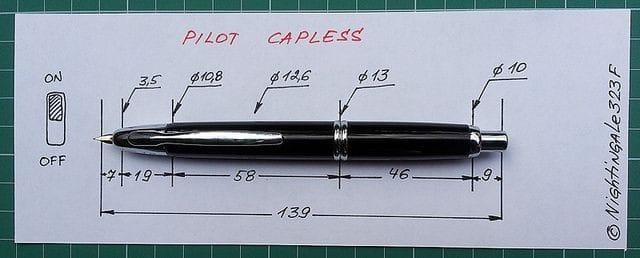 PILOT CAPLESS
ON
OFF
3,5
ϕ10,8
ϕ12,6
ϕ13
ϕ10
7
19
58
46
9
139
© Nightingale323F